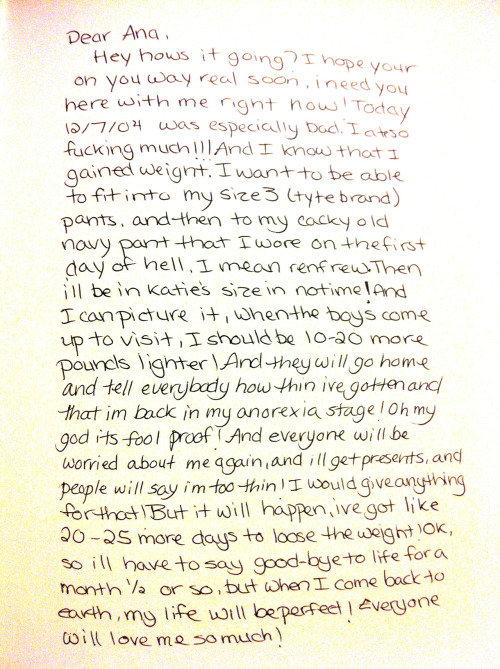 Dear Ana,
Hey hows it going? I hope your
on you way real soon, i need you
here with me right now! Today
12/7/04 was especially bad. I ate so
fucking much!!! And I know that I
gained weight. I want to be able
to fit into my size 3 (tyte brand)
pants, and then to my cacky old
navy pant that I wore on the first
day of hell, I mean renfrew. Then
ill be in Katie's size in no time! And
I can picture it, when the boys come
up to visit, I should be 10-20 more
pounds lighter! And they will go home
and tell everybody how thin ive gotten and
that im back in my anorexia stage! Oh my
god its fool proof! And everyone will be
worried about me again, and ill get presents, and
people will say i'm too thin! I would give anything
for that! But it will happen, ive got like
20-25 more days to loose the weight! Ok,
so ill have to say good-bye to life for a
month 1/2 or so, but when I come back to
earth, my life will be perfect! Everyone
will love me so much!